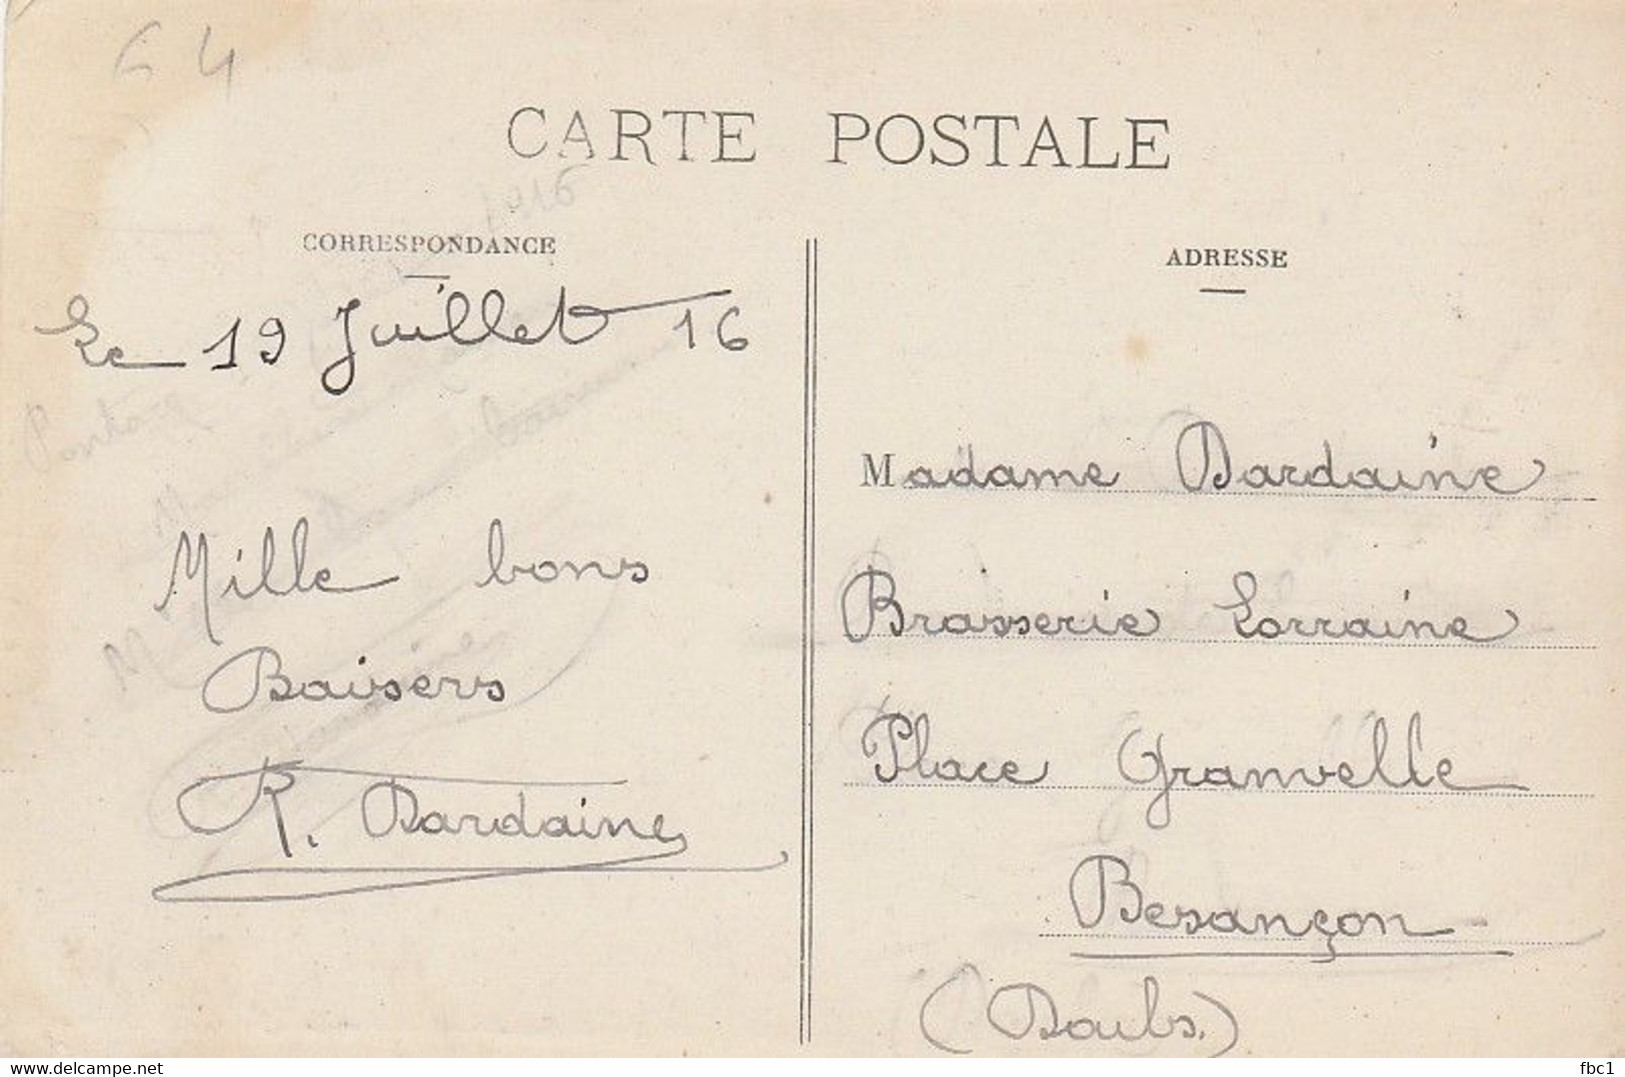 64
CARTE POSTALE
1916
CORRESPONDANCE
Le 19 Juillet 16
Mille bons
Baisers
R. Dardaine
ADRESSE
Madame Dardaine
Brasserie Lorraine
Place Granvelle
Besançon
(Doubs.)
delcampe.net
fbc1